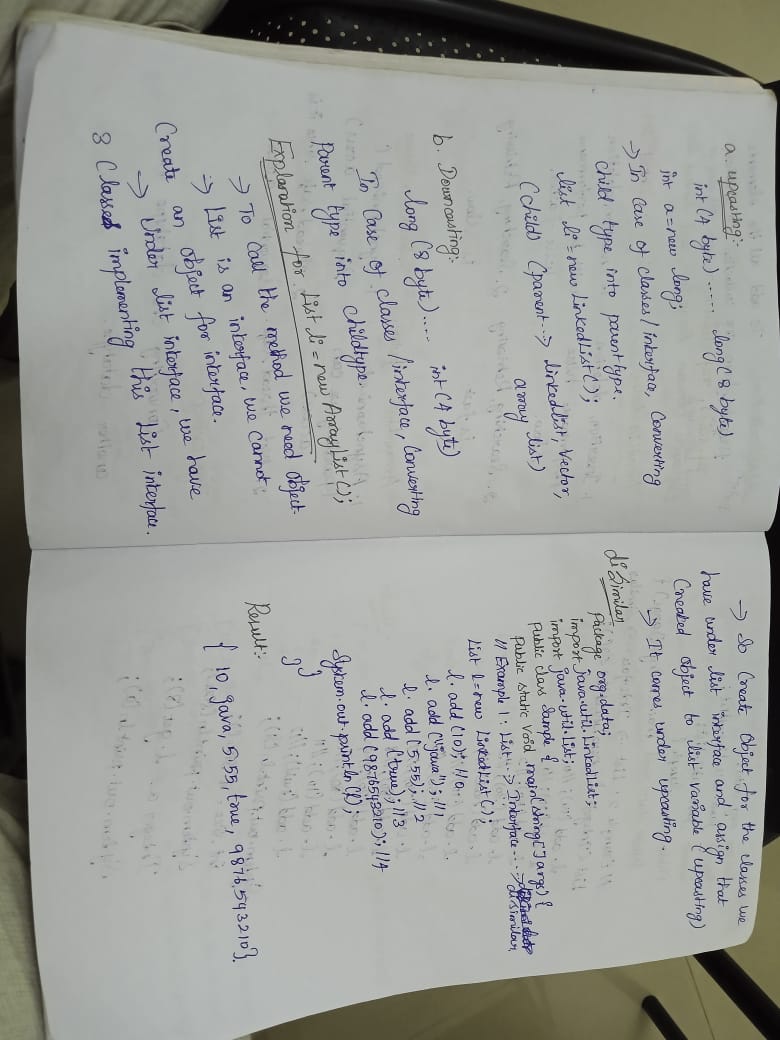 a. upcasting:-
int (4 byte) ..... long (8 byte)
int a = new long;
→ In Case of classes / interface, Converting
child type into parent type.
list li = new LinkedList();
(child) (parent --> linkedlist, Vector,
array list)
b. Downcasting:-
long (8 byte) .... int (4 byte)
In Case of classes / interface, Converting
Parent type into childtype.
Explanation for List li = new ArrayList();
→ To Call the method we need object.
→ List is an interface, we cannot
Create an object for interface.
→ Under list interface, we have
3 Classes implementing this List interface.
→ So Create Object for the classes we
have under list interface and assign that
Created object to list variable (upcasting)
→ It comes under upcasting.
disimilar
Package org.data;
import java.util.LinkedList;
import java.util.List;
Public class Sample {
Public static void main(string[] args) {
// Example 1: List --> Interface ---> disimilar
List l = new LinkedList();
l. add (10); //0
l. add ("java"); //1
l. add (5.55); //2
l. add (true); //3
l. add (9876543210); //4
System.out.println(l);
}
}
Result:-
{ 10, java, 5.55, true, 9876,543210}.